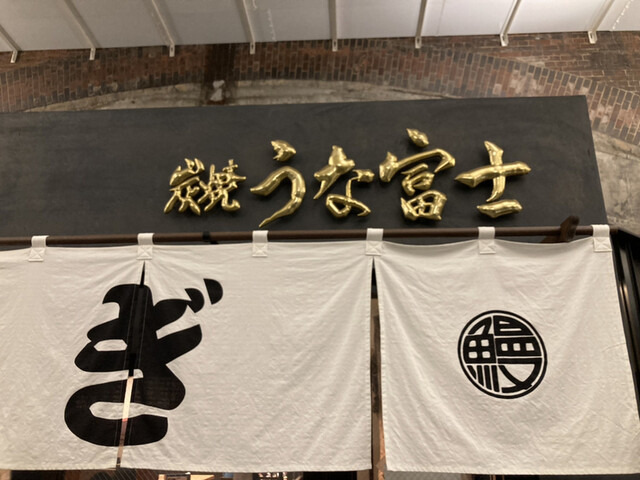 炭焼うな富士
ぎ
鰻